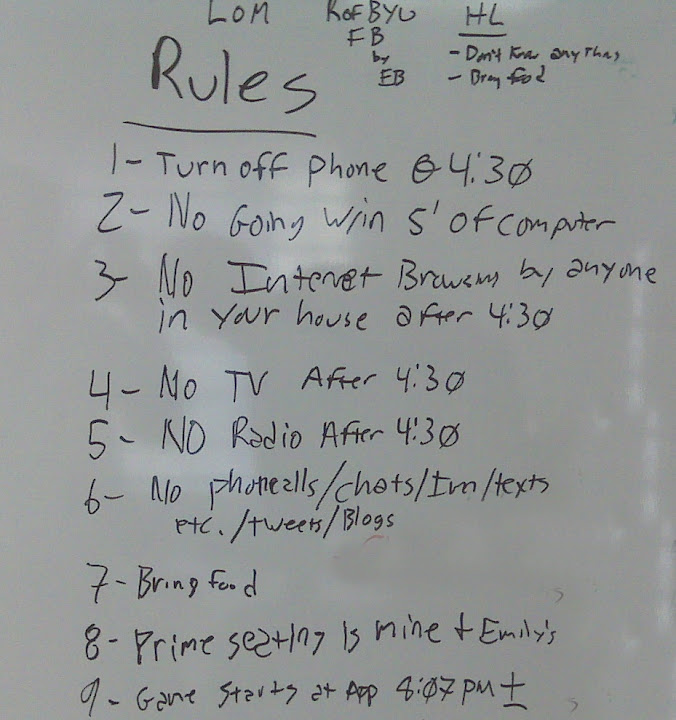 LOM
KofBYU
FB
by
EB
HL
- Don't know anything
- Bring food
Rules
1- Turn off phone @ 4:30
2- No Going w/in 5' of computer
3- No Internet Browsing by anyone
in your house after 4:30
4- No TV After 4:30
5- NO Radio After 4:30
6- No phonecalls/chats/Im/texts
etc./tweets/Blogs
7- Bring food
8- Prime seating is mine + Emily's
9- Game starts at App 8:07 pm ±